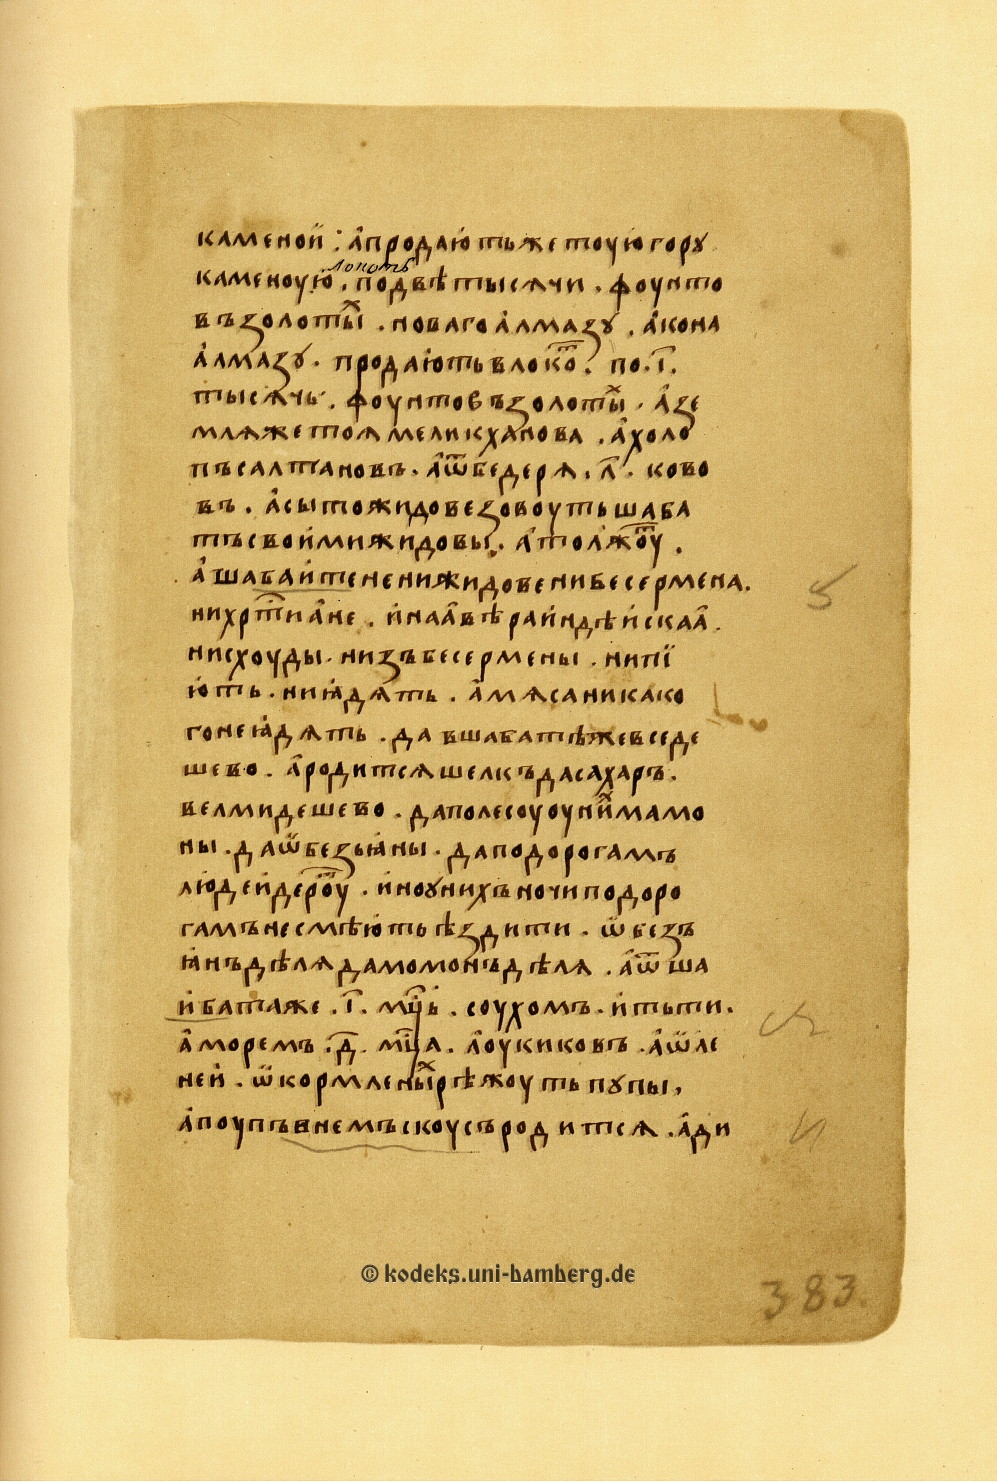 каменой : а҆продаю҆тьжетоую҆гору
локоть
каменоую҆ . подвѣтысѧчи . фоунто
възолотыⷯ . новагоа҆лмазу . а҆кона
а҆лмазу . продаю҆тьвлокоⷮ . по . і҃ .
тысѧчь . фоунтовъзолотыⷯ . а҆зе
млѧжетоѧмеликханова . а҆холо
пъсалтановъ . а҆ѿбедерѧ . л҃ . ково
въ . а҆сытожидовезовоутьшаба
тъсвои҆мижидовы . а҆толжоуⷮ .
а҆шабаи҆тененижидовенибесермена .
нихрⷭ҇тиа҆не . и҆наа҆вѣраи҆ндѣи҆скаа҆ .
нисхоуды . низъбесермены . нипї
ю҆ть . ниꙗ҆дѧть . а҆мѧсаникако
гонеꙗ҆дѧть . давшабатѣжевседе
шево . а҆родитсѧшелкъдасахаръ .
велмидешево . даполесоуоуниⷯмамо
ны . даѡ҆безьꙗ҆ны . даподорогамъ
лю҆деи҆дероуⷮ . и҆ноунихъночиподоро
гамънесмѣю҆тьѣздити . ѡ҆безъ
ꙗ҆нъдѣлѧдамомонъдѣлѧ . а҆ѿша
и҆батаже . і҃ . мц҃ь . соухомъ . и҆тьти .
а҆моремъ . д҃ . мц҃а . а҆оукиковъ . а҆ѡ҆ле
неи҆ . ѡ҆кормленыⷯрѣжоутьпупы ,
а҆поупъвнемъскоусъродитсѧ . а҆ди
© kodeks.uni-bamberg.de
383.